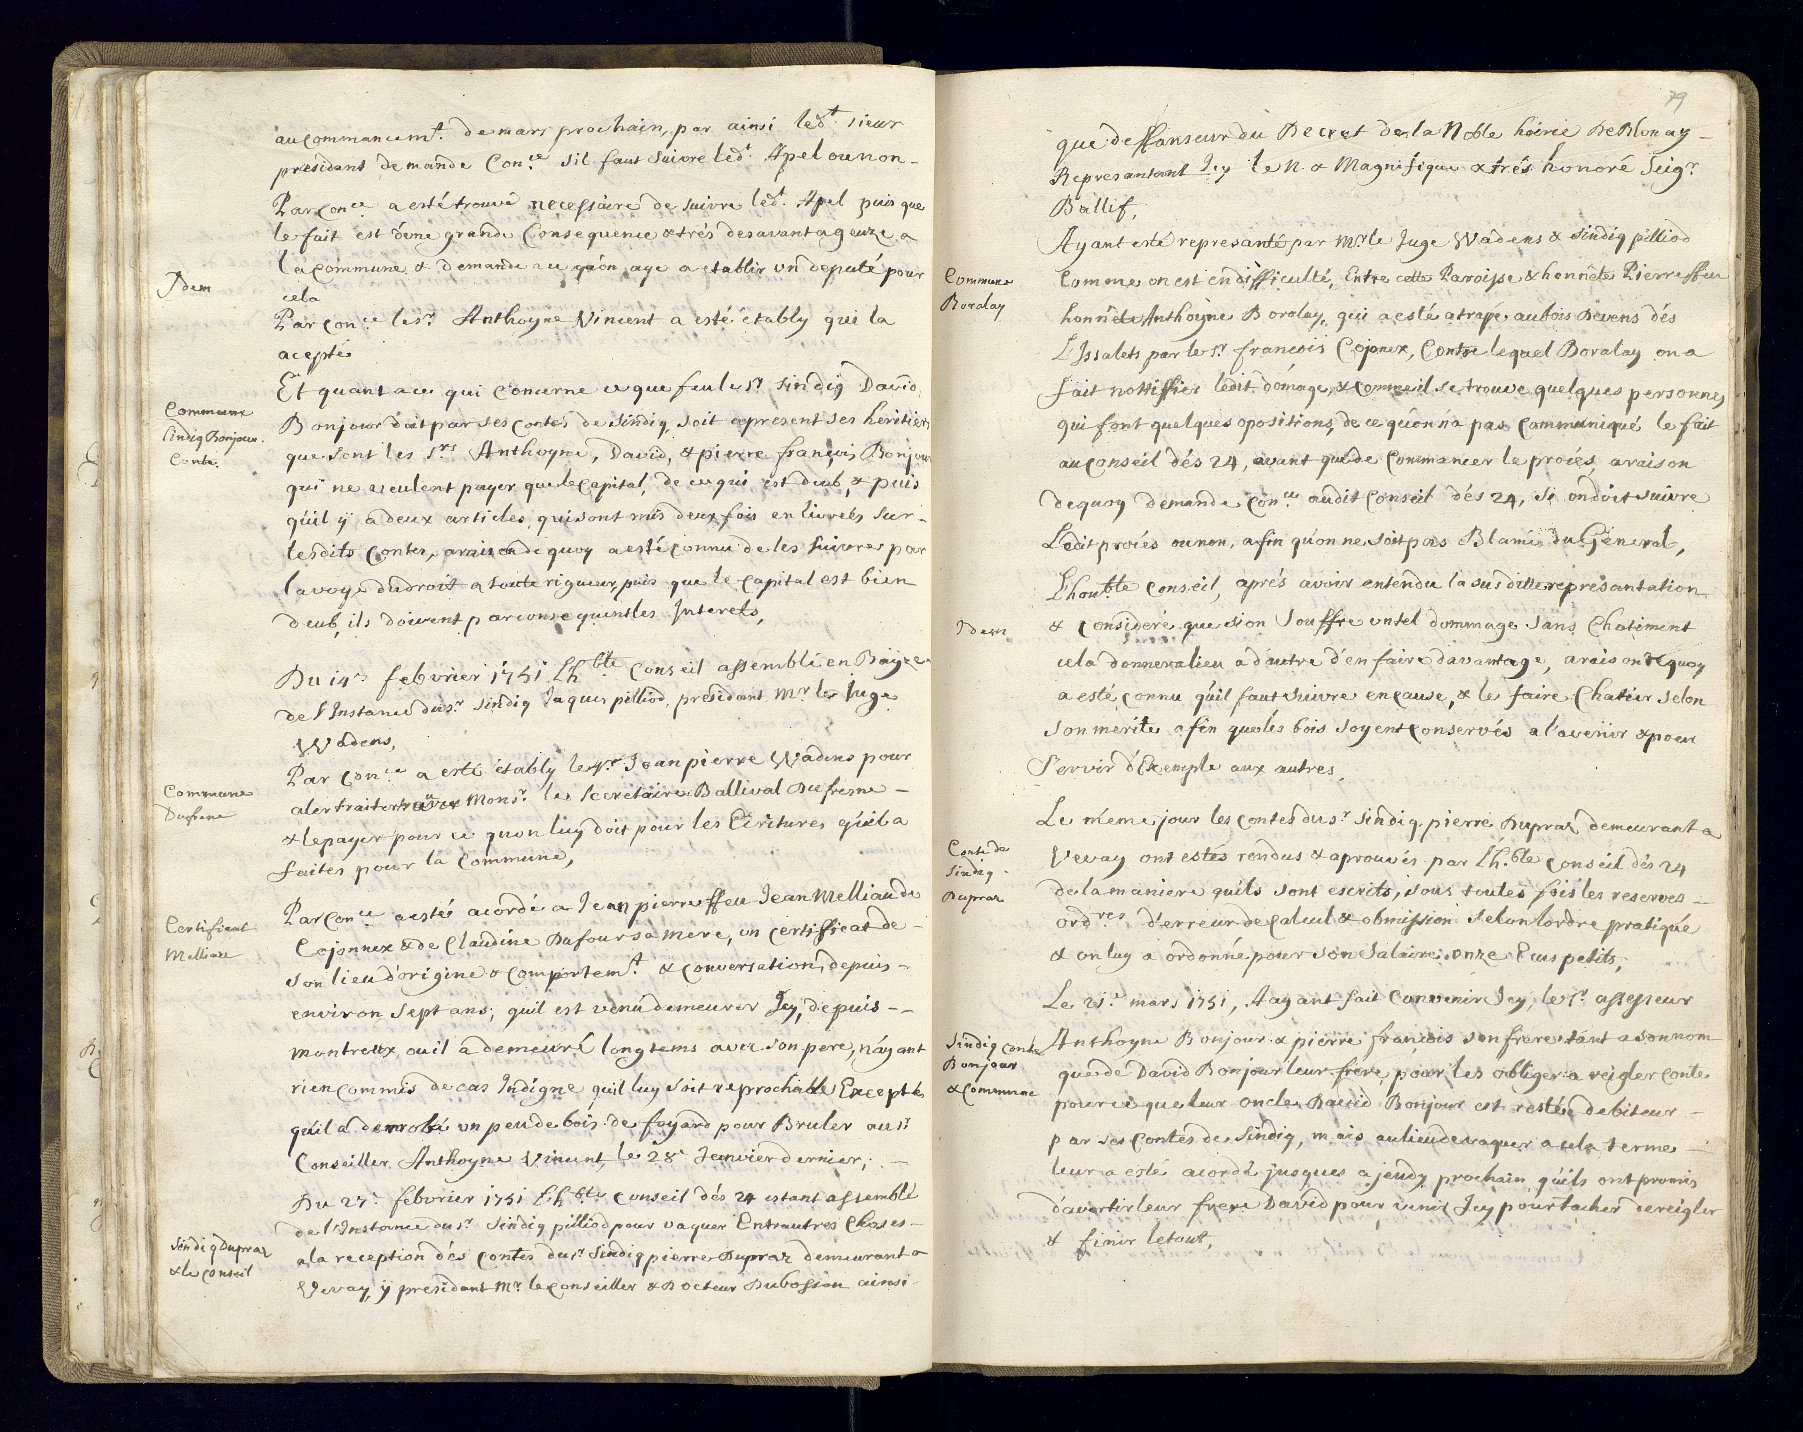 au commancem.t de mars prochain, par ainsi led.t sieur
présidant demande Con.ce sil faut suivre led.t Apel ou non -
Par Con.ce a esté trouvé necessáire de suivre led.t Apel puis que
le fait est d'une grande Consequence & trés desavantageuze a
Idem
la Commune & demande au qu'on age a établir un deputé pour
cela
Par Con.ce le S.r Anthoyne Vincent a esté établÿ qui la
acepté
Et quant a ce qui Concerne ce que feu le S.r Sindiq David
Commune
Sindiq Bonjour.
Conte.
Bonjour doit par ses Contes de Sindiq, soit apresent ses heritiers
que sont les S.rs Anthoyne, David, & pierre françois Bonjour
qui ne veulent payer que le Capital, de ce qui est deub, & puis
qu'il ÿ a deux articles, qui sont mis deux fois en Livrées sur -
lesdits Contes, a raison de quoy a esté Connu de les suivres par
la voye du droit a toute rigueur, puis que le Capital est bien
deub, ils doivent par consequent les Interets,
Du 14.e febvrier 1751 Lh.ble Conseil assemblé en Baÿze
de l'Instance du S.r Sindiq Jaques pilliod, présidant M.r le Juge
Wadens,
Commune
Dufresne
Par Con.ce a esté étably le S.r Jean pierre Wadens pour
aler traiter avec Mons.r le Secretaire Ballival Dufresne -
& le payer pour ce qu'on luy doit pour les Ecritures qu'il a
faites pour la Commune,
Certificat
Melliaud
Par Con.ce a esté acordé a Jean pierre ffeu Jean Melliaud de
Cojonnex & de Claudine Dufour sa mere, un certifficat de -
son lieu d'origine & comportem.t & conversation, depuis -
environ sept ans, quil est venu demeurer Icy, depuis - -
Montreux, ou il a demeuré longtems avec son pere, n'áyant
rien commis de cas Indigne quil luy soit reprochable Excepté
qu'il a derrobé un peu de bois de foyard pour Bruler au S.r
Conseiller Anthoyne Vincent, le 28.e Jenvier dernier; -
Du 27.e febvrier 1751 Lh.ble Conseil dés 24 estant assemblé
Sindiq Dupraz
& le Conseil
de l'Instance du S.r Sindiq pilliod pour vaquer Entrautres Choses -
a la reception dés Contes du S.r Sindiq pierre Dupraz demeurant a
Vevay, ÿ présidant M.r le Conseiller & Docteur Dubosson ainsi
79
que deffanseur du Decret de la Noble hoirie De Blonay -
Represantant Icy le N. & Magnifique & trés honoré Seig.r
Ballif,
Ayant esté represanté par M.r le Juge Wadens & Sindiq pilliod
Commune
Boralay
Comme on est en difficulté, Entre cette Paroisse & honnête Pierre ffeu
honnête Anthoyne Boralay, qui a esté atrapé au bois Devens dés
L'Issalets par le S.r françois Cojonex, Contre lequel Boralay on a
fait nottiffier ledit dómage, & comme il se trouve quelques personnes
qui font quelques opositions, de ce qu'on n'a pas Communiqué le fait
au Conseil dés 24, avant que de Commancer le procés, a raison
de quoy demande Con.ce audit Conseil dés 24, si on doit suivre
Ledit procés ou non, afin qu'on ne soit pas Blamé du Géneral,
L'hon.ble Conseil, aprés avoir entendu la sus ditte represantation
Idem
& Consideré que si on souffre un tel dommage sans Chatiment
cela donnera lieu a d'autre d'en faire davantage, a raison de quoy
a esté Connu qu'il faut suivre en cause, & le faire Chatier selon
son merite afin que lés bois soyent conservés a l'avenir & pour
Servir d'Exemple aux autres,
Le méme jour les contes du S.r Sindiq pierre Dupraz demeurant a
Conte de
Sindiq
Dupraz
Vevay ont estés rendus & aprouvés par Lh.ble Conseil dés 24
de la maniere qu'ils sont escrits, sous toutes fois les reserves -
ord.res d'erreur de Calcul & obmission selon lordre pratiqué
& on luy a ordonné pour son Salaire onze Ecus petits,
Le 21.e mars 1751, Aayant fait Convenir Icy, le S.r assesseur
Sindiq Conte
Bonjour
& Commune
Anthoyne Bonjour & pierre françois son frere, tant a son nom
que de David Bonjour leur frere, pour les obliger a reigler conte
pour ce que leur oncle David Bonjour est restée debiteur -
par ses Contes de Sindiq, mais au lieu de vaquer a cela terme -
leur a esté acordé jusques a jeudy prochain, qu'ils ont promis
d'avertir leur frere David pour venir Icy pour tacher de reigler
& finir le tout,